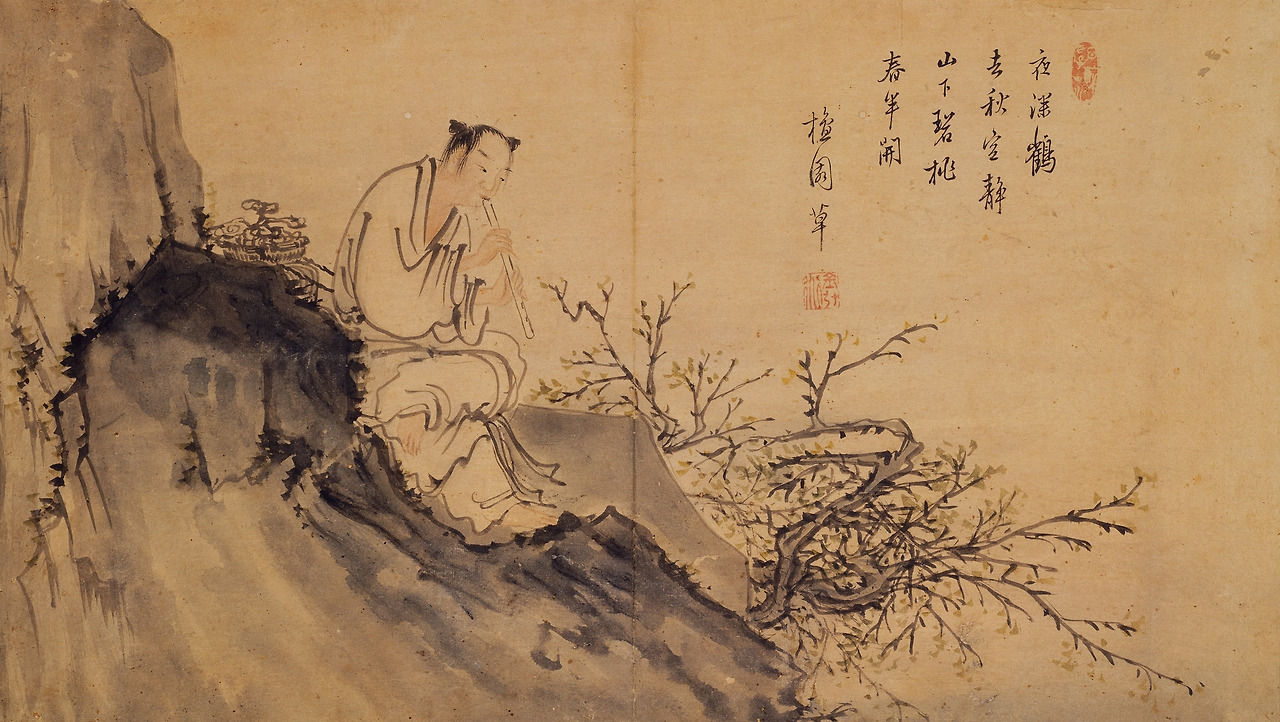 夜深鶴
去秋空靜
山下碧桃
春半開
檀園 草